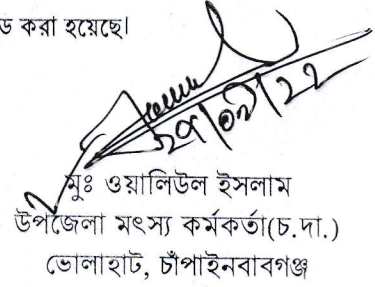 ড করা হয়েছে।
মুঃ ওয়ালিউল ইসলাম
উপজেলা মৎস্য কর্মকর্তা(চ.দা.)
ভোলাহাট, চাঁপাইনবাবগঞ্জ